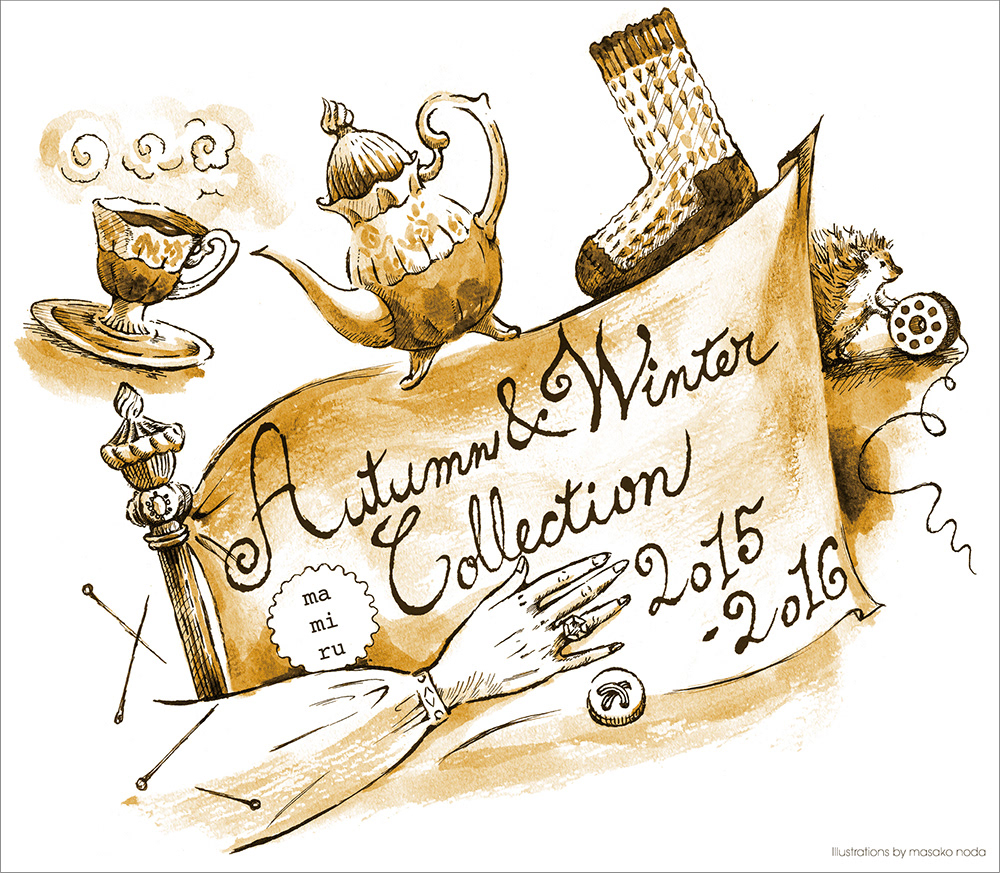 Autumn & Winter
Collection
2015
-2016
ma
mi
ru
Illustrations by masako noda